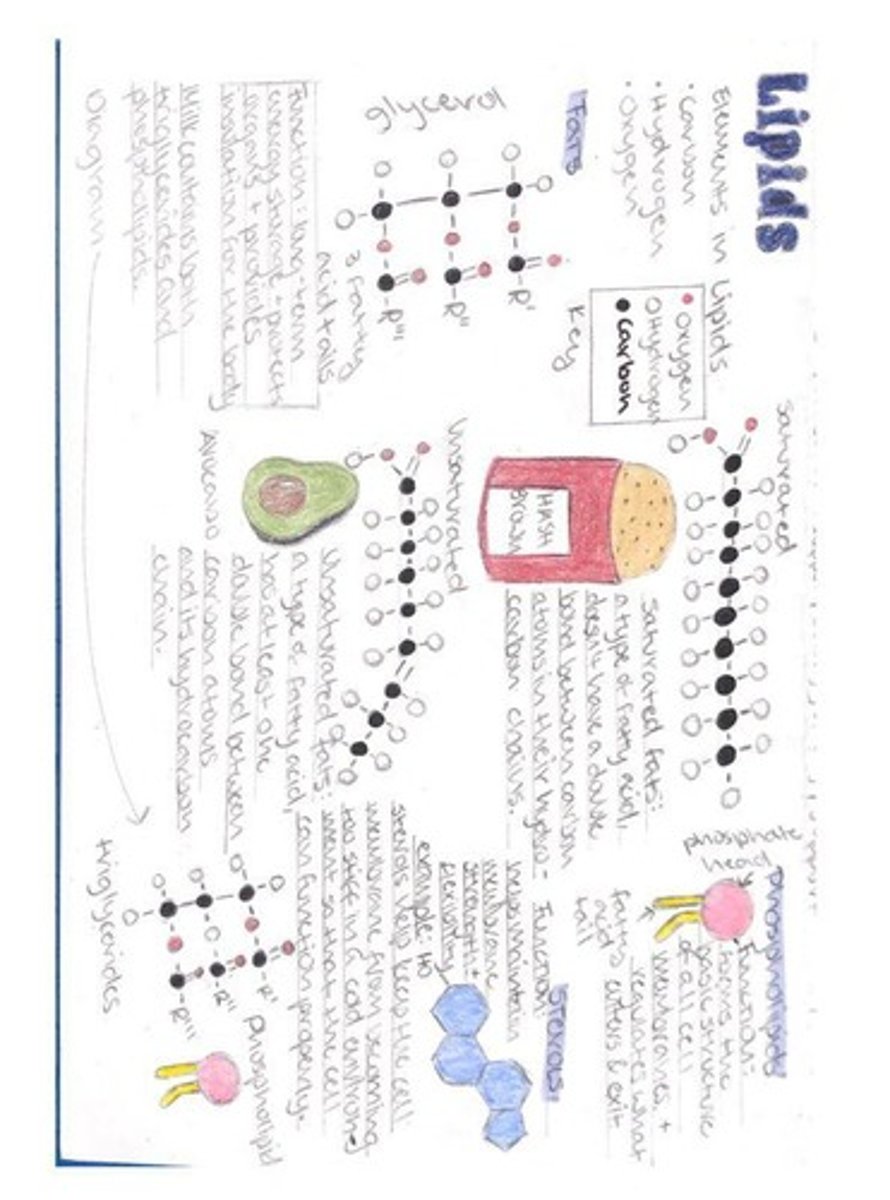 Lipids
Elements in Lipids
• Carbon
• Hydrogen
• Oxygen
Key
Oxygen
Hydrogen
Carbon
Fats
glycerol
R'
R"
R'''
3 fatty
acid tails
Function: long-term
energy storage + protects
organs + provides
insulation for the body
Milk contains both
triglycerides and
phospholipids.
Diagram
saturated
HASH
BROWN
saturated fats:
a type of fatty acid,
doesn't have a double
bond between carbon
atoms in their hydro-
carbon chains.
Unsaturated
Avocado
Unsaturated fats:
a type of fatty acid,
has at least one
double bond between
carbon atoms
and its hydrocarbon
chain.
phospholipids
phosphate
head
fatty
acid
tail
Function-
forms the
basic structure
of all cell
membranes, +
regulates what
enters & exit
Sterols
Function:
helps maintain
membrane
strength +
flexibility
example:
sterols help keep the cell
membrane from becoming
too stiff in a cold environ-
ment so that the cell
can function properly.
R'
R"
R'''
triglycerides
phospholipid